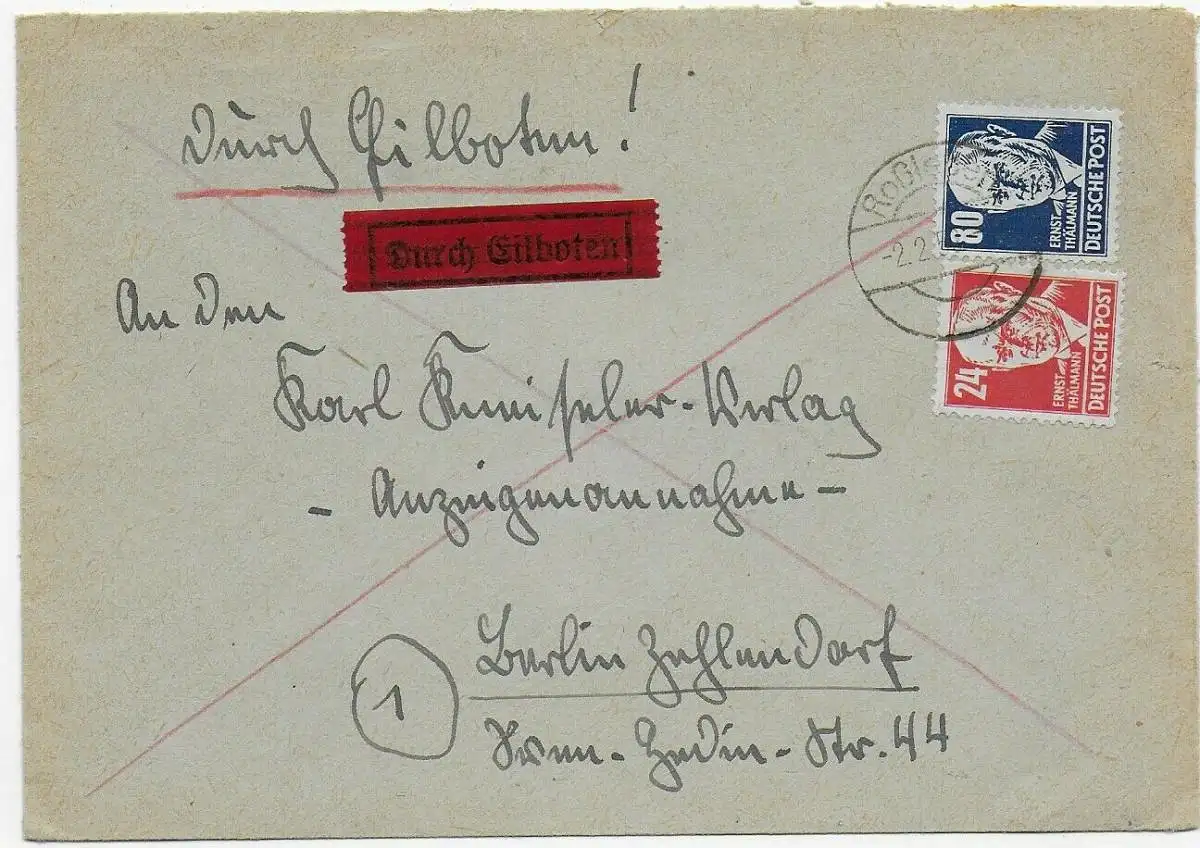 Durch Eilboten!
Durch Eilboten
80
ERNST
THÄLMANN
DEUTSCHE POST
-2.2
24
ERNST
THÄLMANN
DEUTSCHE POST
An den
Karl Kneiseler-Verlag
- Anzeigenannahme -
1
Berlin Zehlendorf
Sven-Hedin-Str. 44